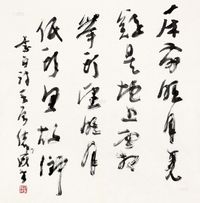 床前明月光
疑是地上霜
举头望明月
低头思故乡
李白诗